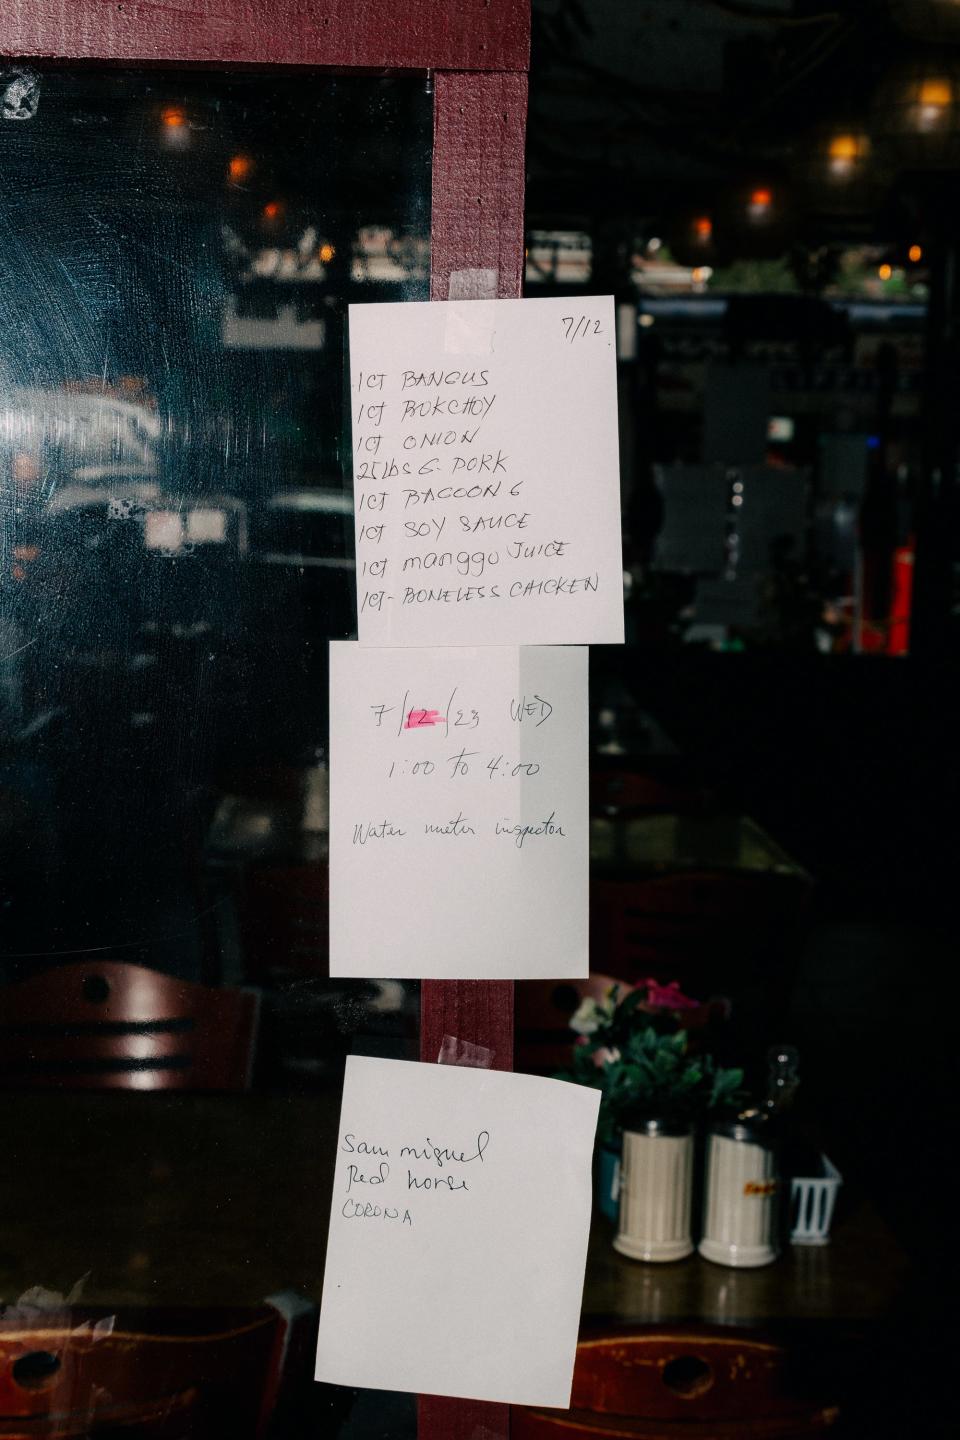 7/12
1CT BANGUS
1CT BOKCHOY
1CT ONION
25lbs G. PORK
1CT BACOON 6
1CT SOY SAUCE
1CT manggo JUICE
1CT- BONELESS CHICKEN
7/12/23 WED
1:00 to 4:00
Water meter inspector
Sam miguel
Red horse
CORONA